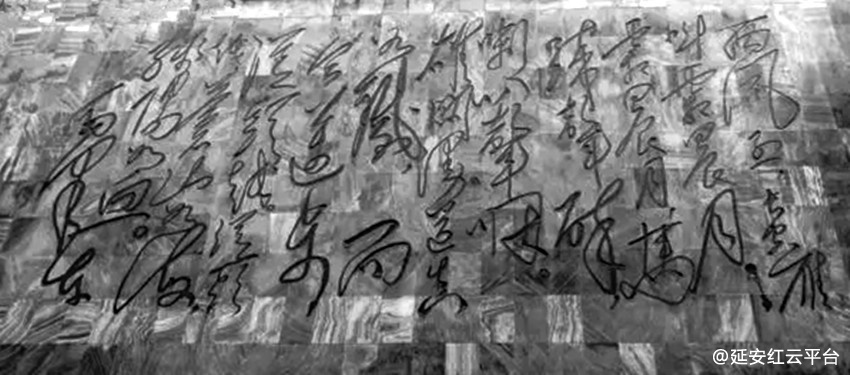 西风烈，长空雁
叫霜晨月。
霜晨月，马
蹄声碎
喇叭声咽。
雄关漫道真
如铁，而
今迈步
从头越从头
越苍山如海
残阳如血。
毛泽东
@延安红云平台